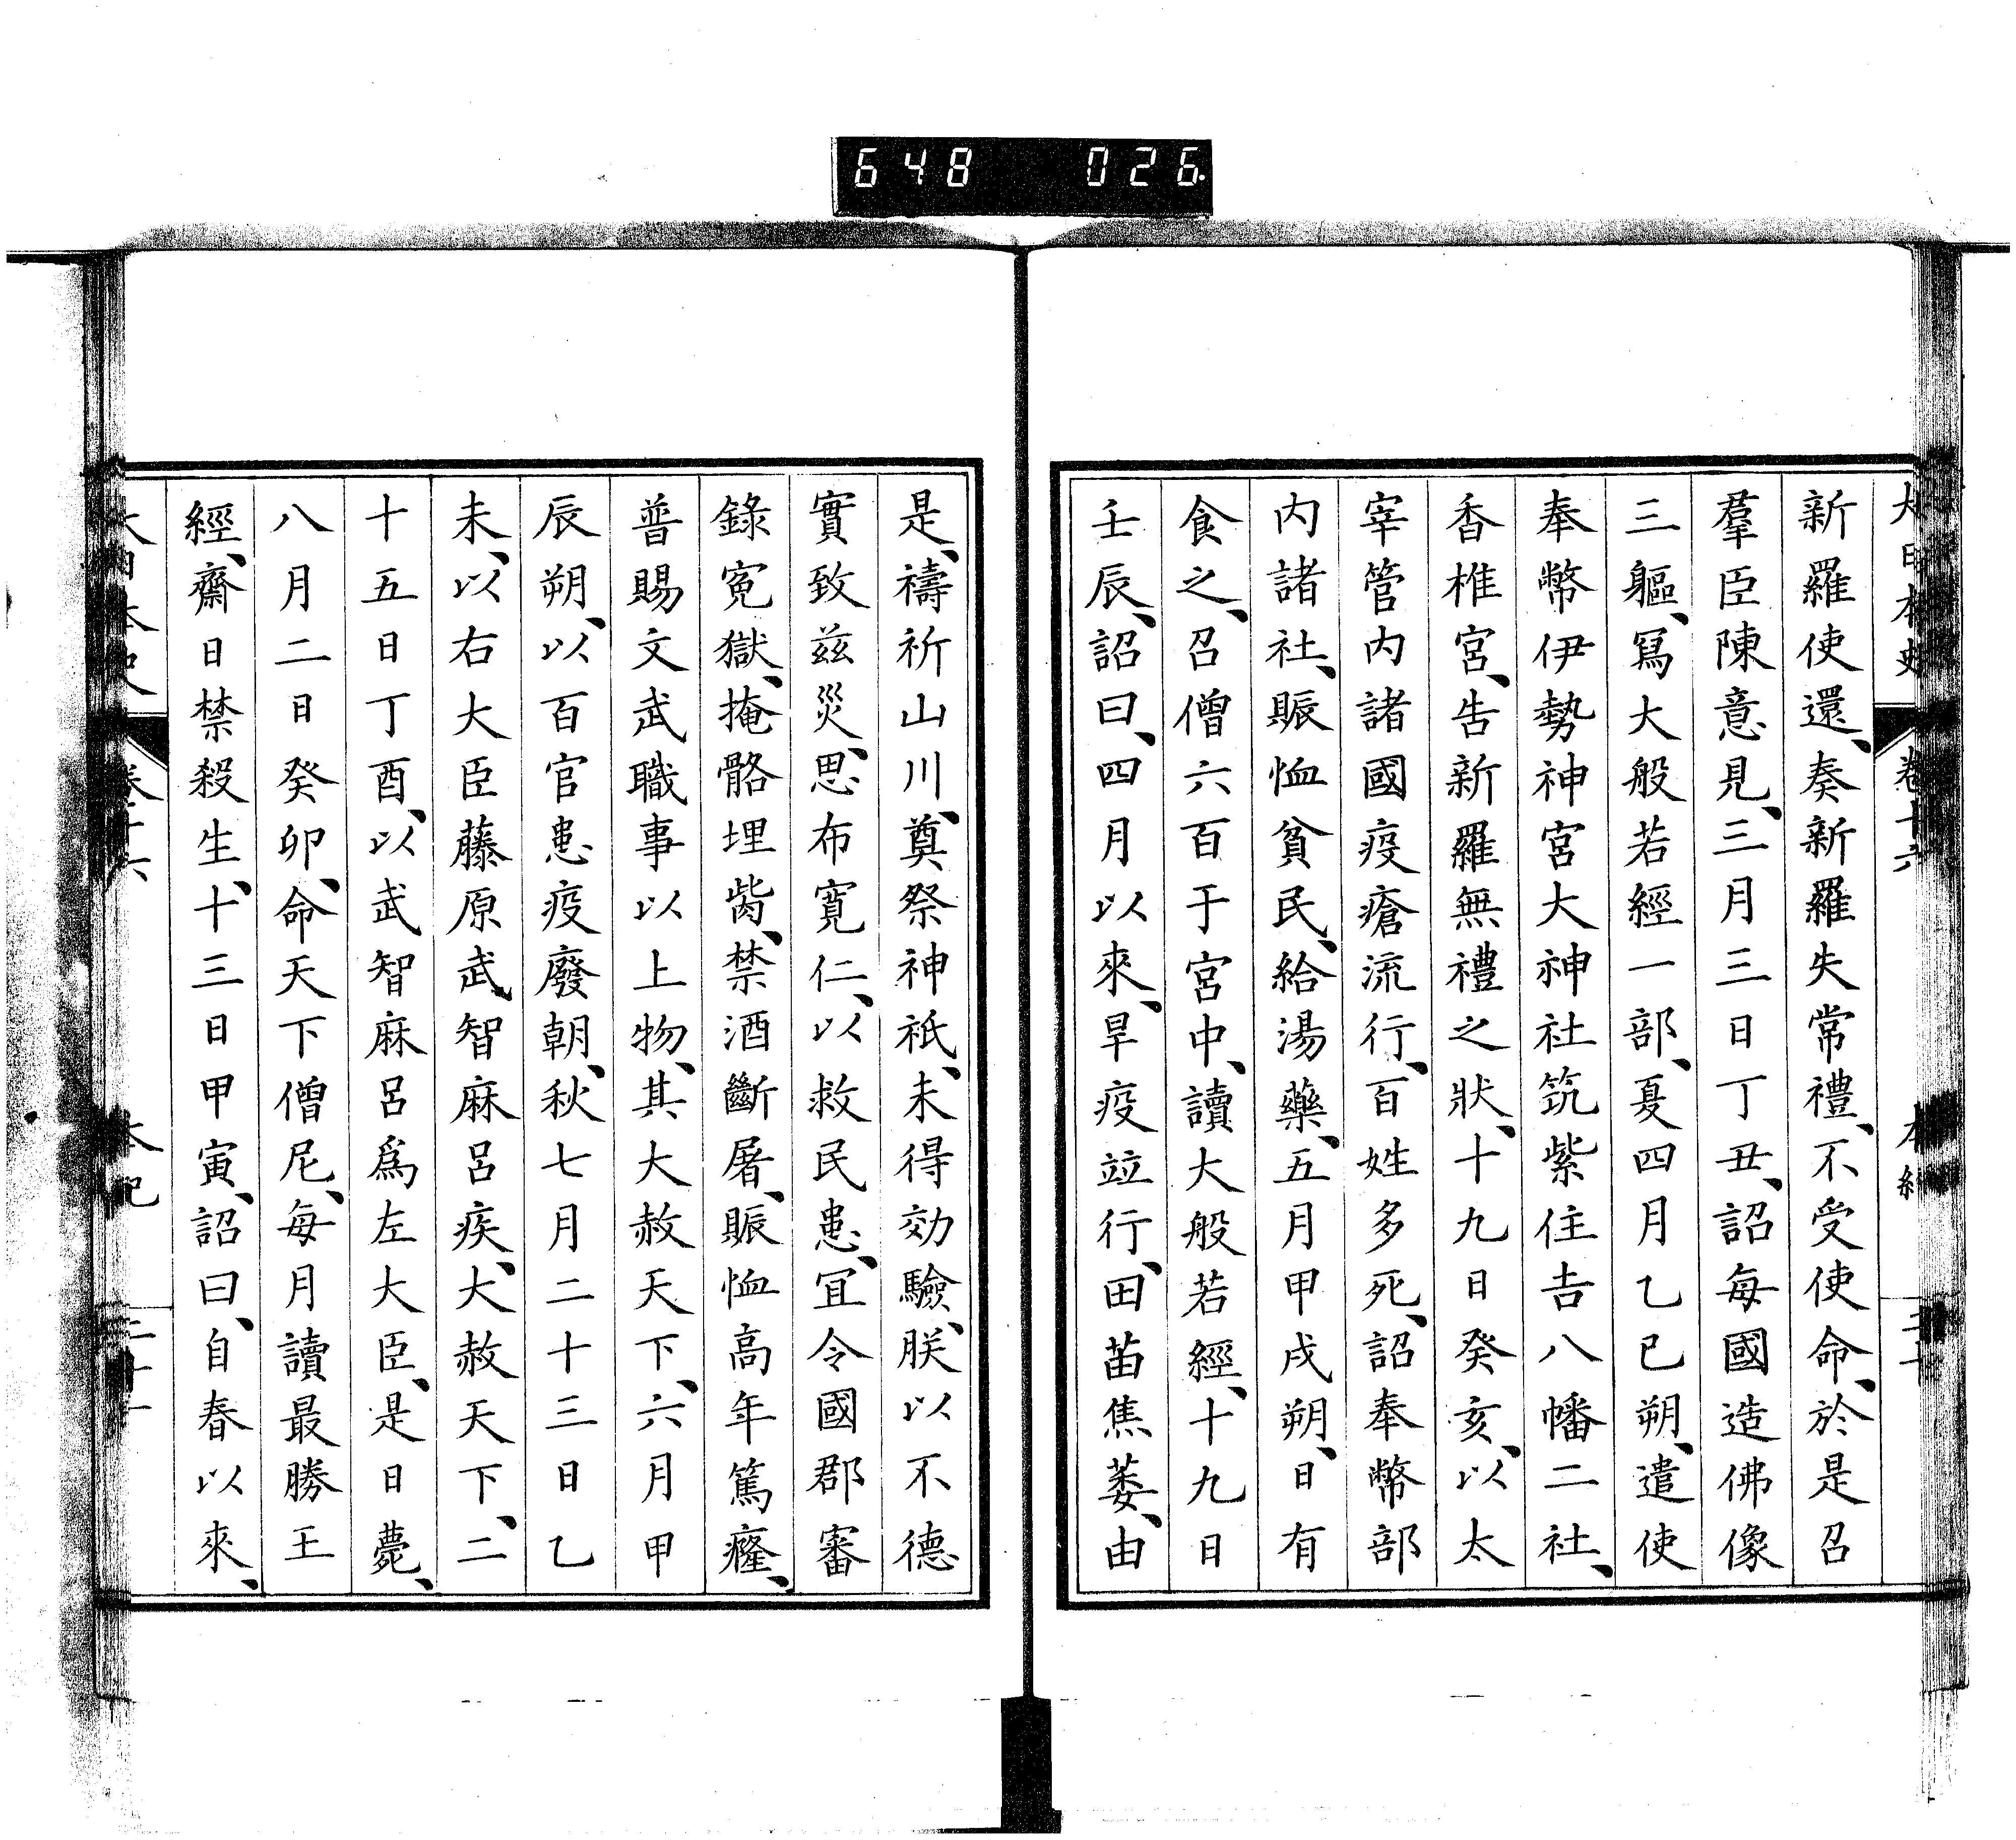 648 026
大日本史 卷十六 本紀 二十
新羅使還、奏新羅失常禮、不受使命、於是召
羣臣陳意見、三月三日丁丑、詔每國造佛像
三軀、寫大般若經一部、夏四月乙巳朔、遣使
奉幣伊勢神宮大神社筑紫住吉八幡二社、
香椎宮、告新羅無禮之狀、十九日癸亥、以太
宰管內諸國疫瘡流行、百姓多死、詔奉幣部
內諸社、賑恤貧民、給湯藥、五月甲戌朔、日有
食之、召僧六百于宮中、讀大般若經、十九日
壬辰、詔曰、四月以來、旱疫竝行、田苗焦萎、由
是、禱祈山川、奠祭神祇、未得効驗、朕以不德
實致茲災、思布寬仁、以救民患、宜令國郡審
錄冤獄、掩骼埋胔、禁酒斷屠、賑恤高年篤癃、
普賜文武職事以上物、其大赦天下、六月甲
辰朔、以百官患疫廢朝、秋七月二十三日乙
未、以右大臣藤原武智麻呂疾、大赦天下、二
十五日丁酉、以武智麻呂爲左大臣、是日薨、
八月二日癸卯、命天下僧尼、每月讀最勝王
經、齋日禁殺生、十三日甲寅、詔曰、自春以來、
大日本史 卷十六 本紀 二十一